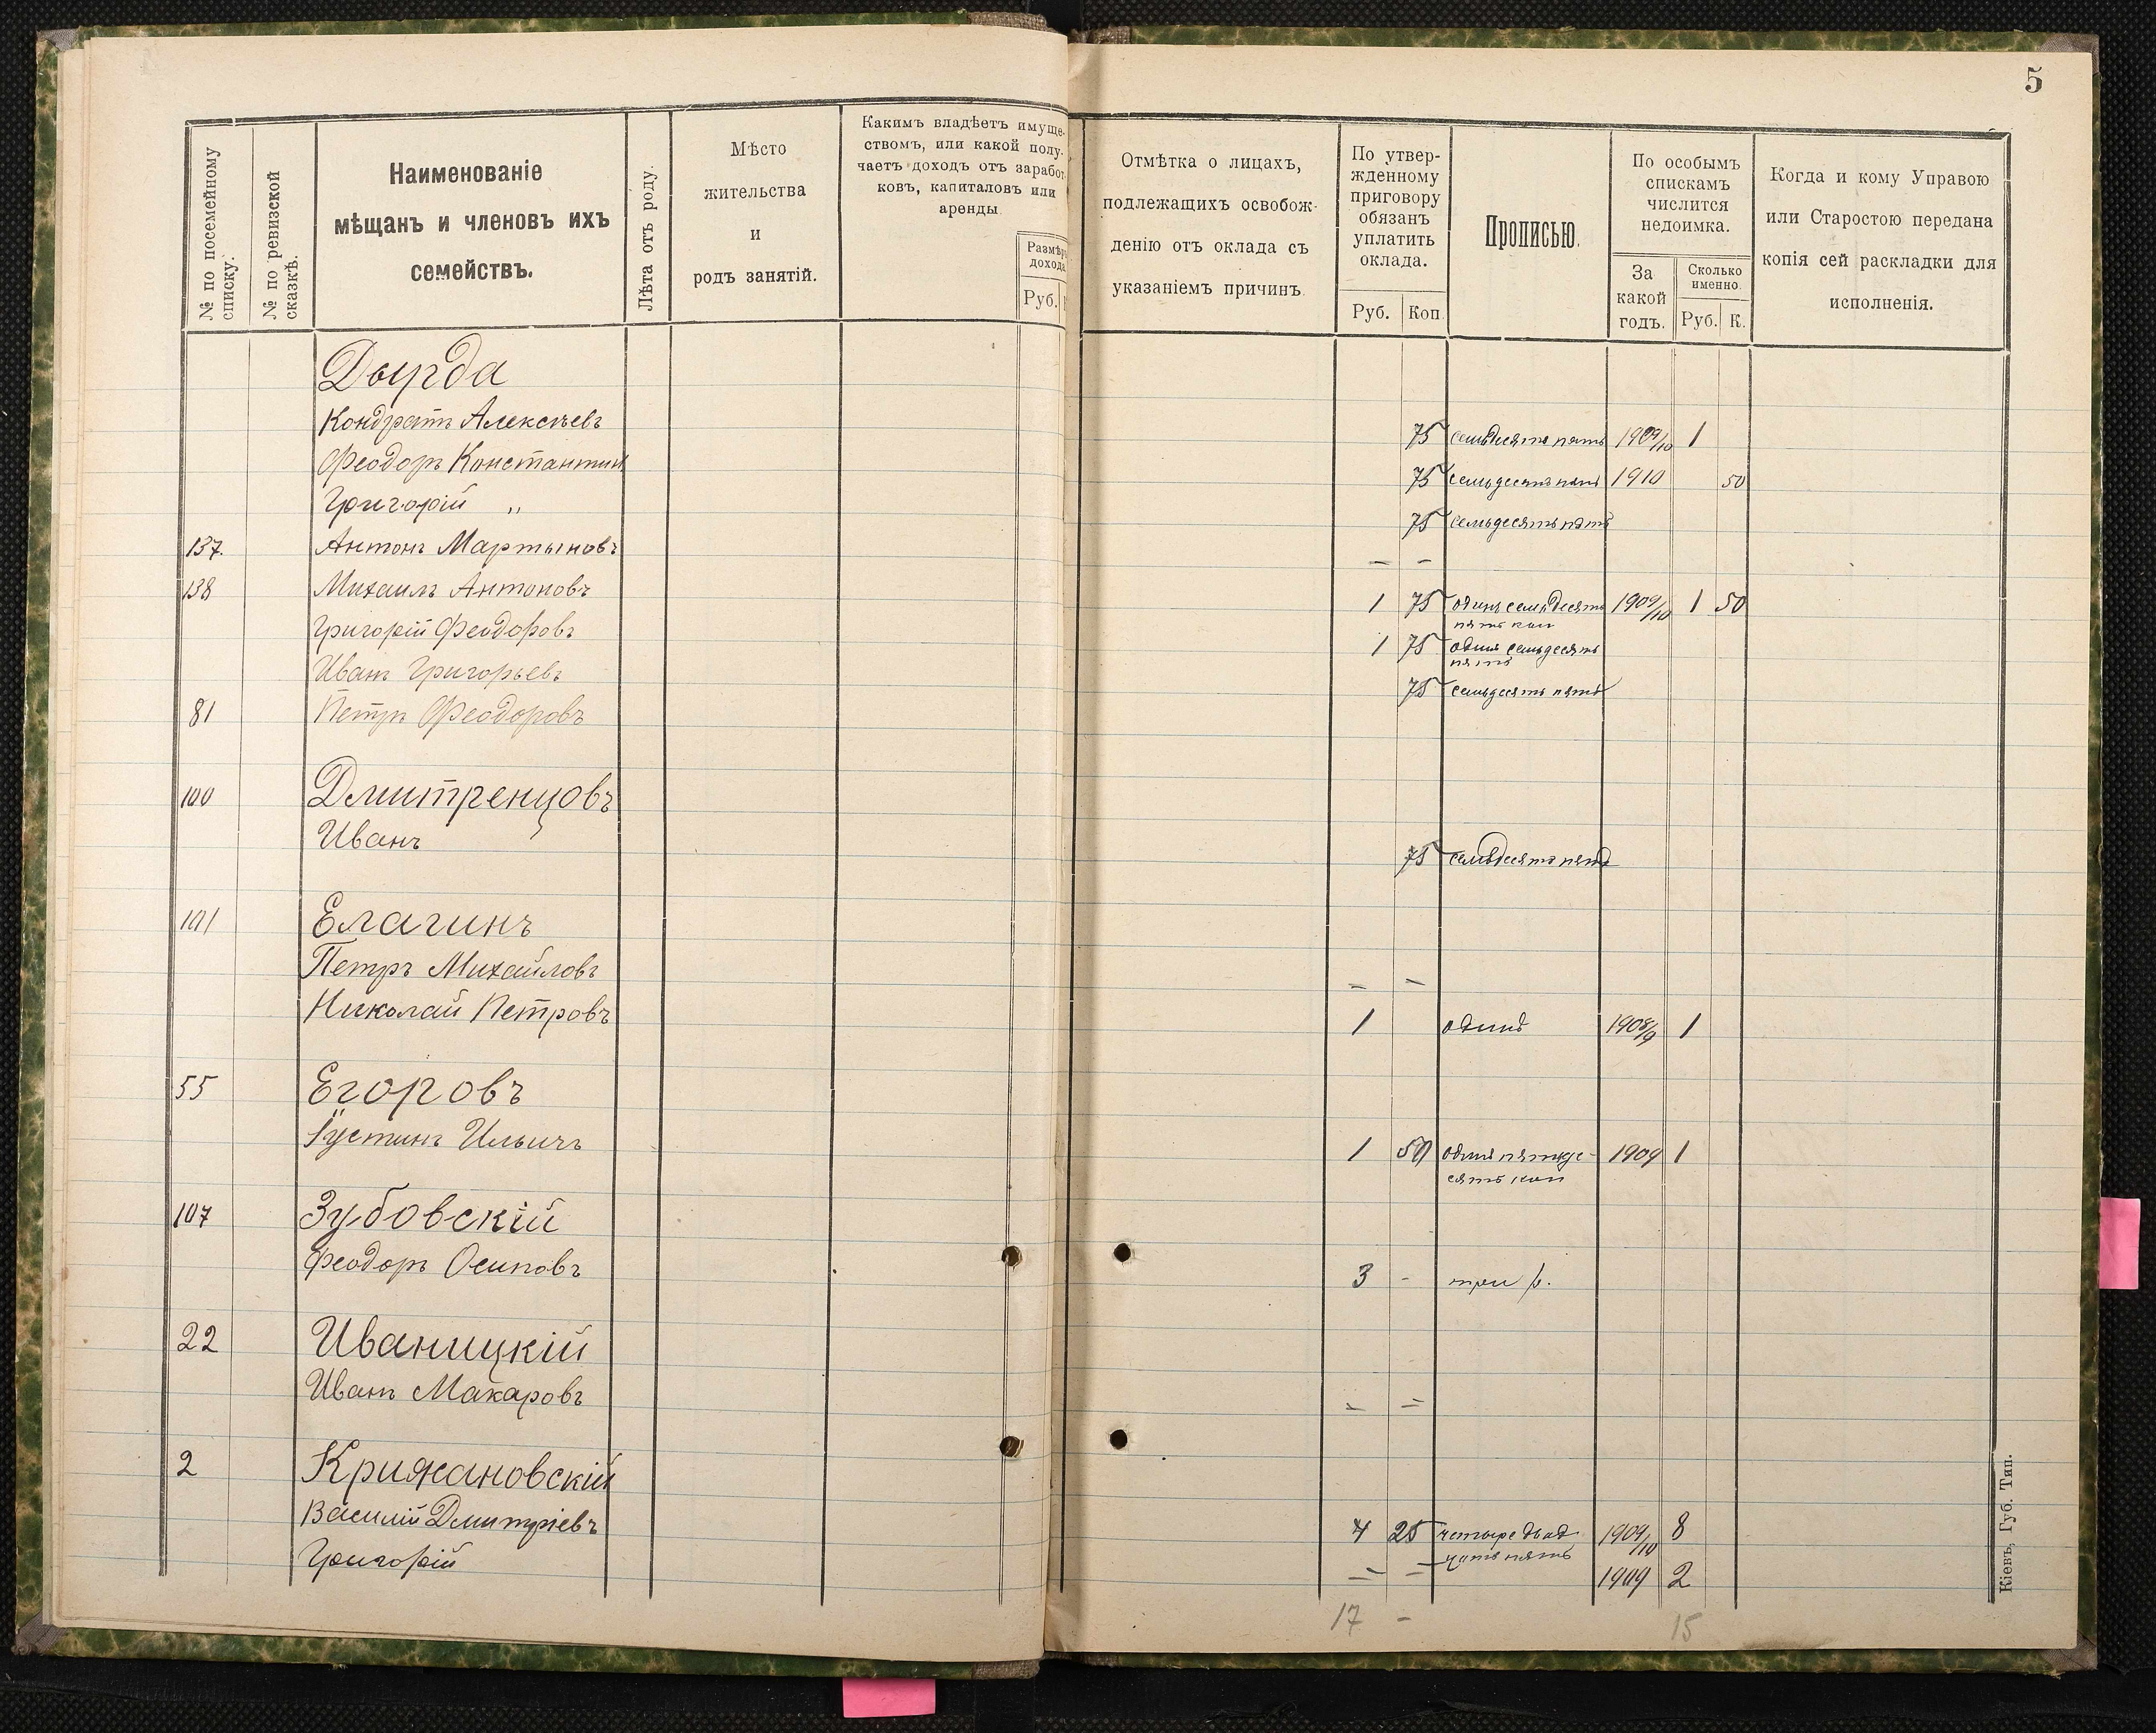 5
№ по посемейному списку.
№ по ревизской сказкѣ.
Наименованіе
мѣщанъ и членовъ ихъ
семействъ.
Лѣта отъ роду.
Мѣсто
жительства
и
родъ занятій.
Какимъ владѣетъ имуще-
ствомъ, или какой полу-
чаетъ доходъ отъ заработ-
ковъ, капиталовъ или
аренды
Размѣръ
дохода
Руб.
Отмѣтка о лицахъ,
подлежащихъ освобож-
денію отъ оклада съ
указаніемъ причинъ
По утвер-
жденному
приговору
обязанъ
уплатить
оклада.
Руб. Коп.
Прописью.
По особымъ
спискамъ
числится
недоимка.
За
какой
годъ.
Сколько
именно
Руб. К.
Когда и кому Управою
или Старостою передана
копія сей раскладки для
исполненія.
Дырда
Кондратъ Алексѣевъ 75 семьдесятъ пять 1909/10 1
Феодоръ Константин 75 семьдесятъ пять 1910 50
Григорій " 75 семьдесятъ пять
137. Антонъ Мартыновъ — -
138 Михаилъ Антоновъ 1 75 одинъ семьдесятъ 1909/10 1 50
пять коп
Григорій Феодоровъ 1 75 один семьдесять
пять
Иванъ Григорьевъ 75 семьдесять пять
81 Петръ Феодоровъ
100 Дмитренцовъ
Иванъ 75 семьдесятъ пять
101 Елагинъ
Петръ Михайловъ - -
Николай Петровъ 1 одинъ 1908/9 1
55 Егоровъ
Іустинъ Ильичъ 1 50 один пятьде- 1909 1
сятъ коп
107 Зубовскій
Феодоръ Осиповъ 3 - три р.
22 Иваницкій
Иванъ Макаровъ - =
2 Крижановскій
Василій Дмитріевъ 4 25 четыре двад 1909/10 8
цать пять
Григорій = = 1909 2
17 - 15
Кіевъ, Губ. Тип.